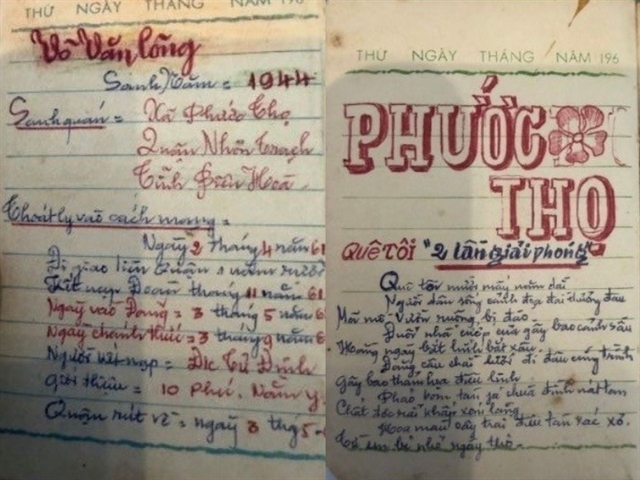 THỨ NGÀY THÁNG NĂM 196
Võ Văn Lông
Sanh Năm = 1944
Sanh quán = Xã Phước Thọ
Quận Nhơn Trạch
Tỉnh Biên Hoà
Thoát ly vào cách mạng =
Ngày 2 tháng 4 năm 61
Đi giao liên Quận 1 năm rưỡi
Kết nạp Đoàn tháng 11 năm 61
Ngày vào Đảng = 3 tháng 5 năm 6
Ngày chánh thức = 3 tháng 9 năm 6
Người kết nạp = Đ/c Tử Đình
Giới thiệu = 10 Phú, Năm
Quận rút về = ngày 3 thg 5-6
THỨ NGÀY THÁNG NĂM 196
PHƯỚC
THỌ
QUÊ TÔI "2 lần giải phóng"
Quê tôi mười mấy năm dài
Người dân sống cảnh đọa đài đương đau
Mồ mả vườn ruộng bị đào
Đuổi nhà cướp của gây bao cảnh sầu
Hàng ngày bắt lính bắt xâu
Đóng cầu chài lưới đi đâu cũng trình
Gây bao thảm họa điêu linh
Pháo bom tàn phá chùa đình nát tan
Chất độc rải khắp xóm làng
Hoa màu cây trái điêu tàn xác xơ.
em bé nhỏ ngây thơ